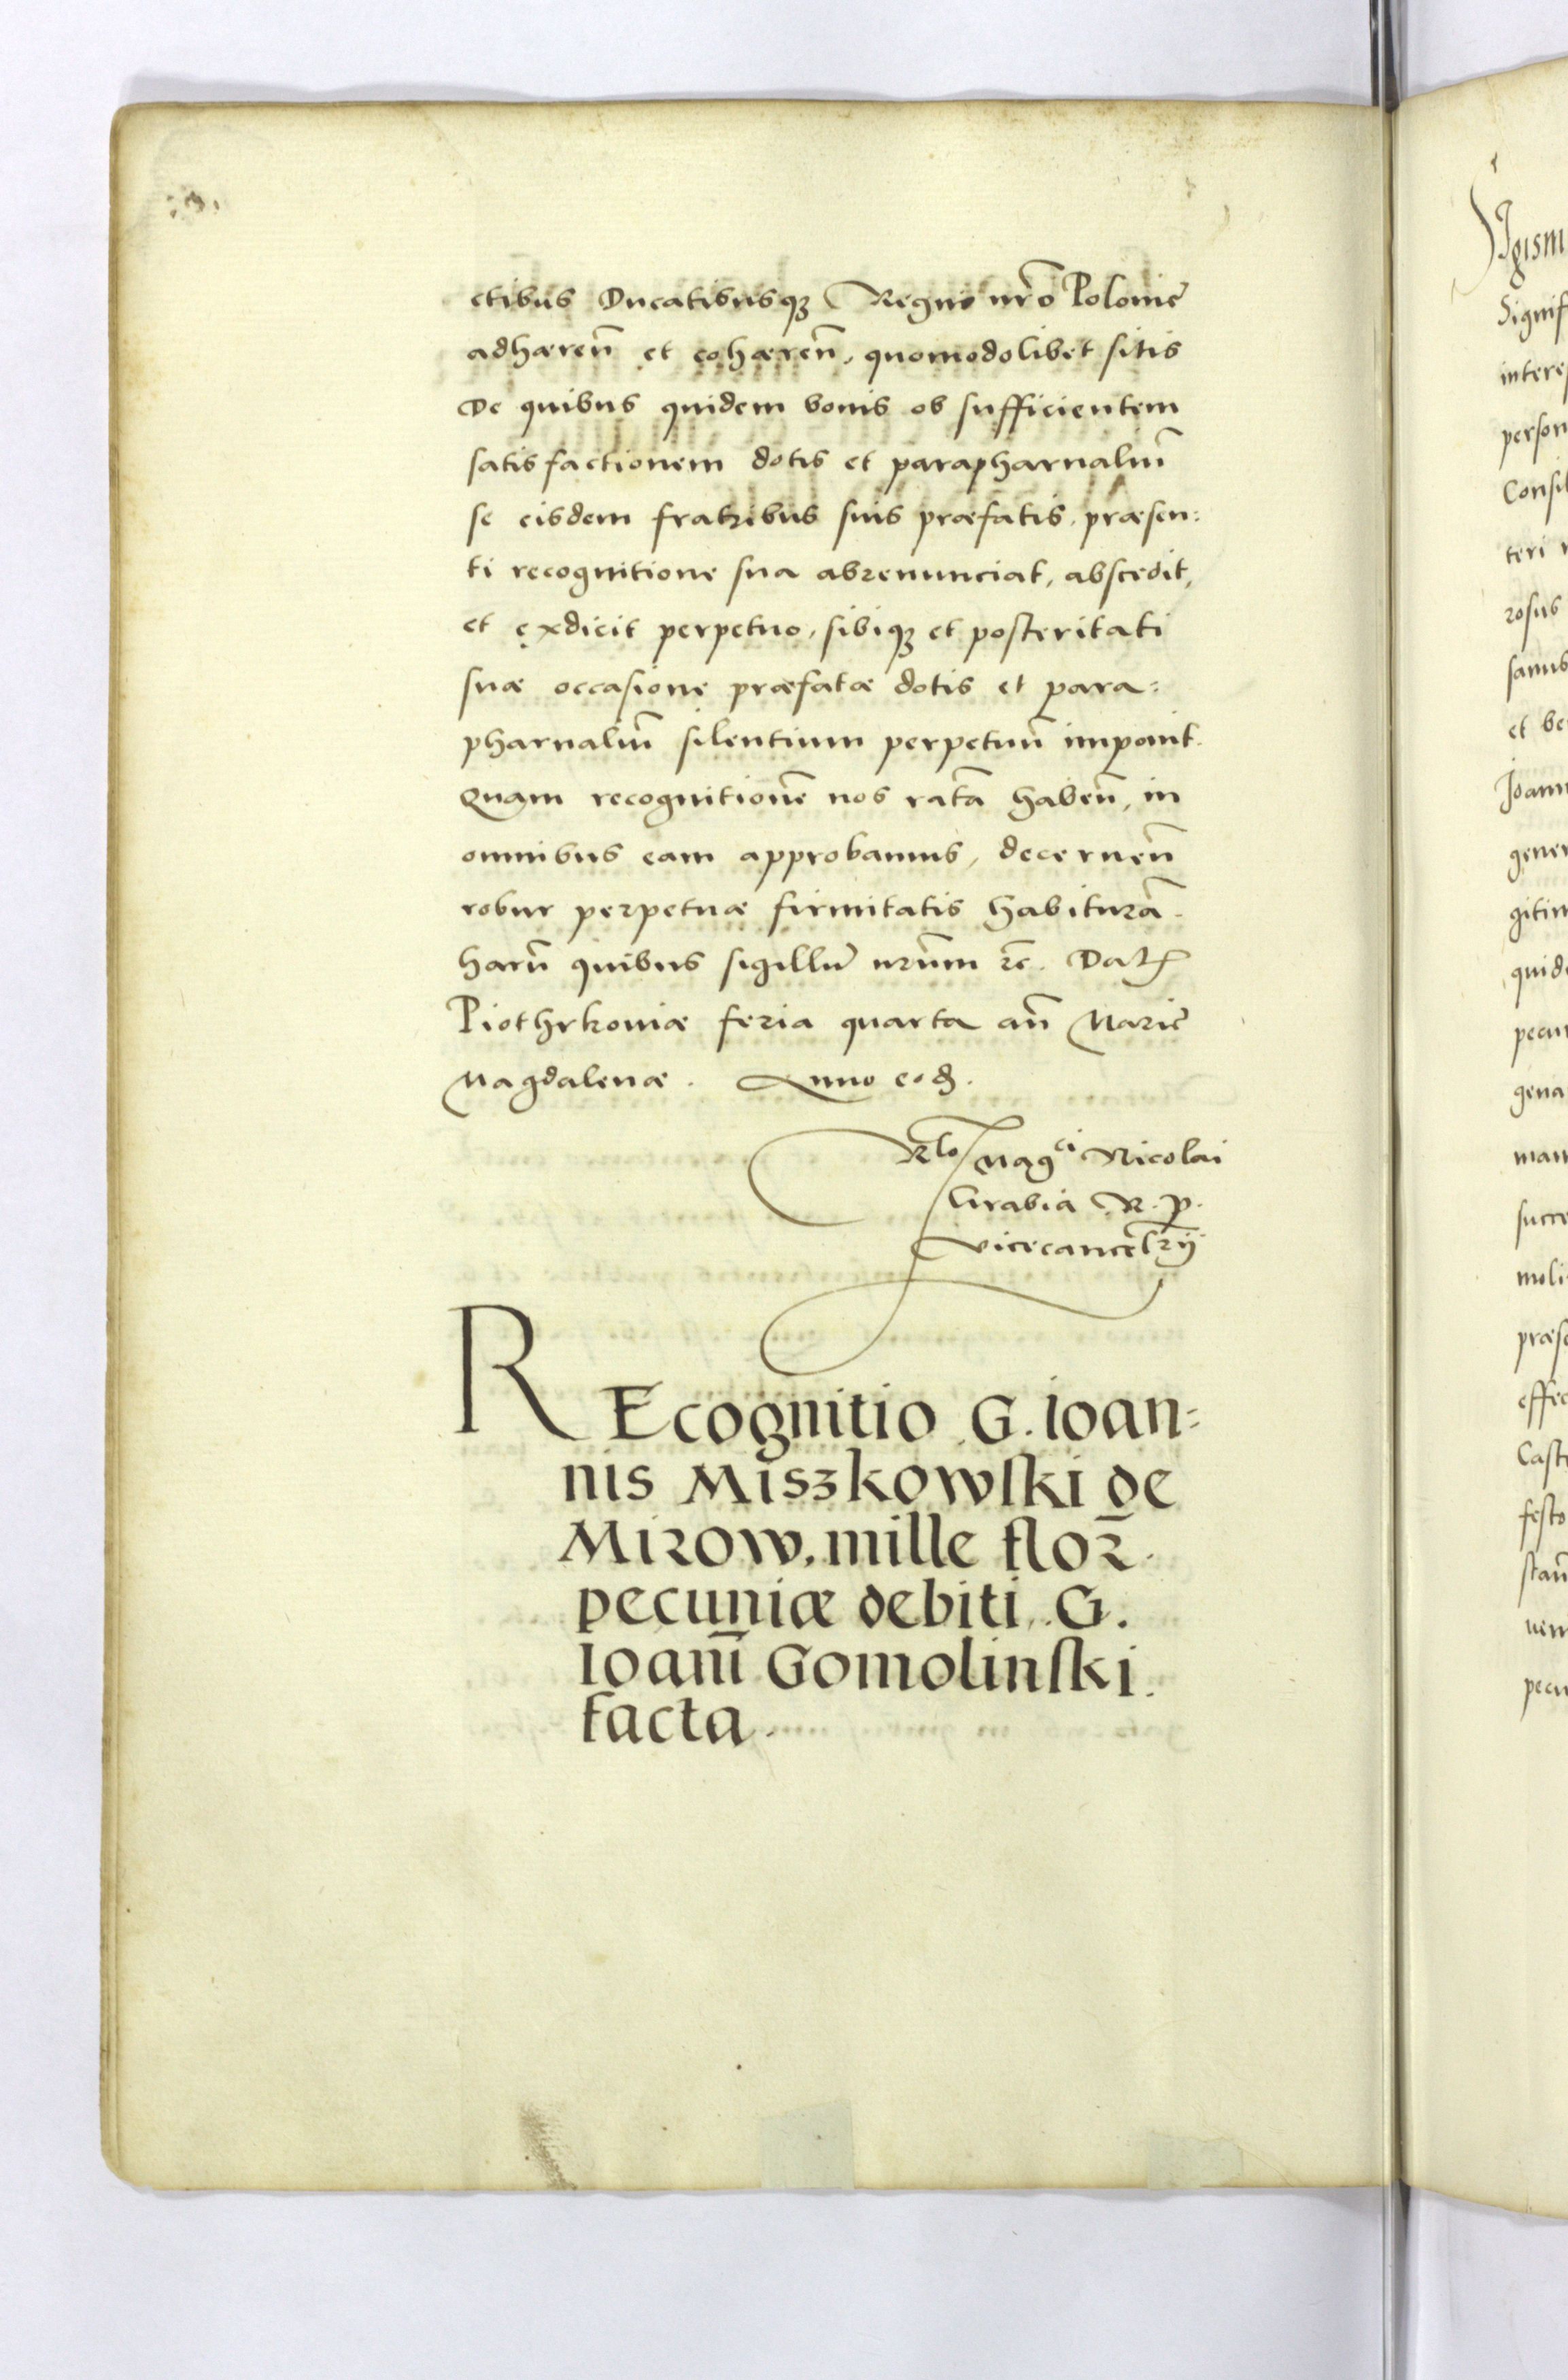 ctibus Ducatibusqꝫ Regno nr̃o Polonie
adhæreñ et cohæreñ, quomodolibet sitis
De quibus quidem bonis ob sufficientem
satisfactionem dotis et parapharnaliũ
se eisdem fratribus suis præfatis, præsen:
ti recognitione sua abrenunciat, abscedit,
et exdicit perpetuo, sibiqꝫ et posteritati
suæ occasione præfatæ dotis et para:
pharnaliũ silentium perpetuũ imponit.
Quam recognitionẽ nos ratã habeñ, in
omnibus eam approbamus, decerneñ
robur perpetuæ firmitatis habiturã.
harũ quibus sigillũ nrũm ꝛc. Datꝭ
Piothrkoviæ feria quarta añ Marie
Magdalenæ. Anno eod.
Rlo Magci Nicolai
Grabia R. P.
vicecancellrij
REcognitio G. Ioan:
nis Miszkowski de
Mirow, mille flor̃.
pecuniæ debiti G.
Ioanñi Gomolinski.
facta.
Igism
Signif
interes
person
Consil
teri
rosus
samus
et be
Joann
gener
gitim
quide
pecun
gena
man
succe
moli
præse
effec
Caste
festo
stañ
ven
pecu